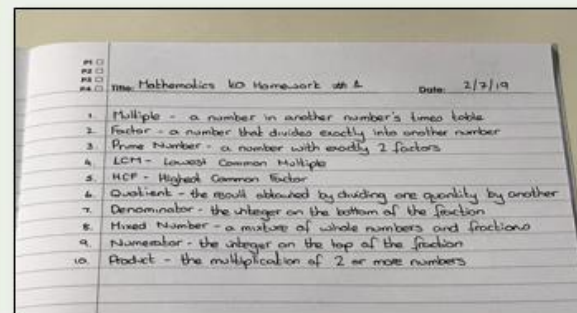 P1 □
P2 □
P3 □
P4 □ Title: Mathematics KO Homework wk 1 Date: 2/7/19
1. Multiple - a number in another number's times table
2. Factor - a number that divides exactly into another number
3. Prime Number - a number with exactly 2 factors
4. LCM - Lowest Common Multiple
5. HCF - Highest Common Factor
6. Quotient - the result obtained by dividing one quantity by another
7. Denominator - the integer on the bottom of the fraction
8. Mixed Number - a mixture of whole numbers and fractions
9. Numerator - the integer on the top of the fraction
10. Product - the multiplication of 2 or more numbers